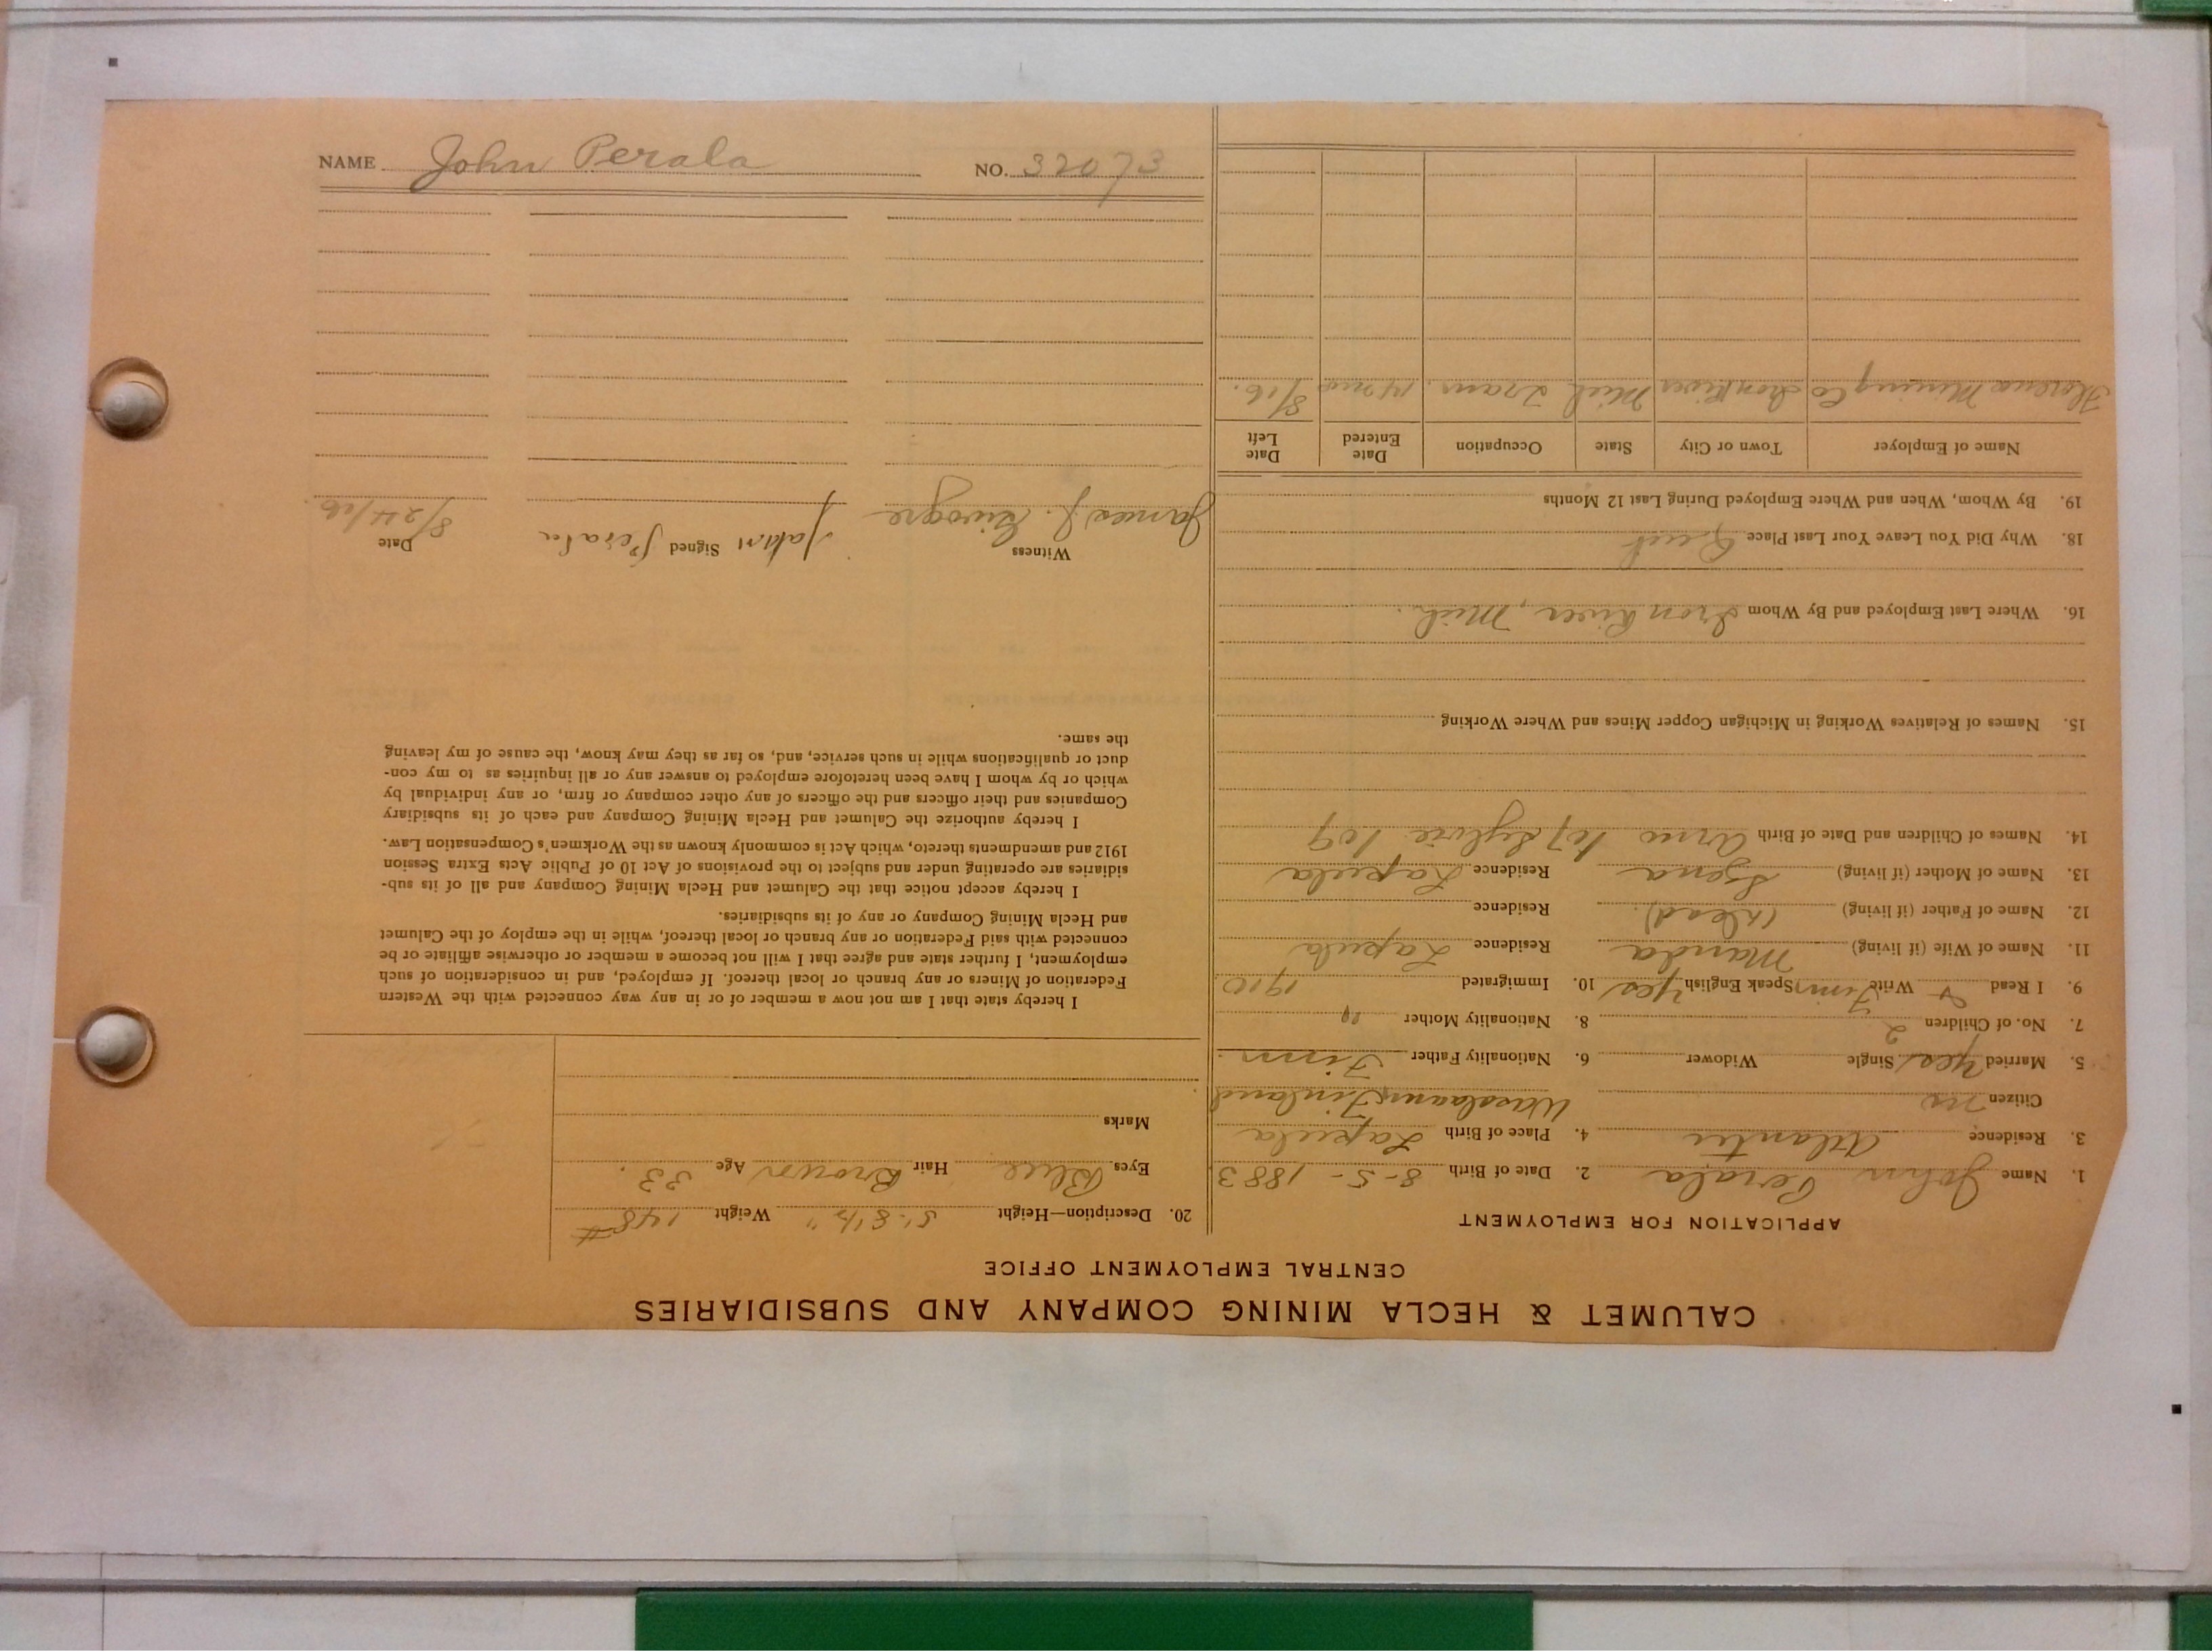 CALUMET & HECLA MINING COMPANY AND SUBSIDIARIES
CENTRAL EMPLOYMENT OFFICE
APPLICATION FOR EMPLOYMENT
1. Name John Perala 2. Date of Birth 8-5-1883
3. Residence Atlantic 4. Place of Birth Lapula
Citizen no Wasslaan, Finland
5. Married Yes Single Widower 6. Nationality Father Finn
7. No. of Children 2 8. Nationality Mother "
9. I Read & Write Finn Speak English Yes 10. Immigrated 1910
11. Name of Wife (if living) Manda Residence Lapula
12. Name of Father (if living) (Dead) Residence
13. Name of Mother (if living) Residence Lapula
14. Names of Children and Date of Birth Arno 1/07 Sylvie 1/09
15. Names of Relatives Working in Michigan Copper Mines and Where Working
16. Where Last Employed and By Whom Iron River, Mich.
18. Why Did You Leave Your Last Place Quit
19. By Whom, When and Where Employed During Last 12 Months
Name of Employer Town or City State Occupation Date Entered Date Left
Mining Co Iron River Mich Tram. 14 mos 8/16.
20. Description—Height 5'-8 1/2" Weight 148#
Eyes Blue Hair Brown Age 33.
Marks
I hereby state that I am not now a member of or in any way connected with the Western
Federation of Miners or any branch or local thereof. If employed, and in consideration of such
employment, I further state and agree that I will not become a member or otherwise affiliate or be
connected with said Federation or any branch or local thereof, while in the employ of the Calumet
and Hecla Mining Company or any of its subsidiaries.
I hereby accept notice that the Calumet and Hecla Mining Company and all of its sub-
sidiaries are operating under and subject to the provisions of Act 10 of Public Acts Extra Session
1912 and amendments thereto, which Act is commonly known as the Workmen's Compensation Law.
I hereby authorize the Calumet and Hecla Mining Company and each of its subsidiary
Companies and their officers and the officers of any other company or firm, or any individual by
which or by whom I have been heretofore employed to answer any or all inquiries as to my con-
duct or qualifications while in such service, and, so far as they may know, the cause of my leaving
the same.
Witness Signed Date
James J. John Perala 8/24/16.
NAME John Perala NO. 32073